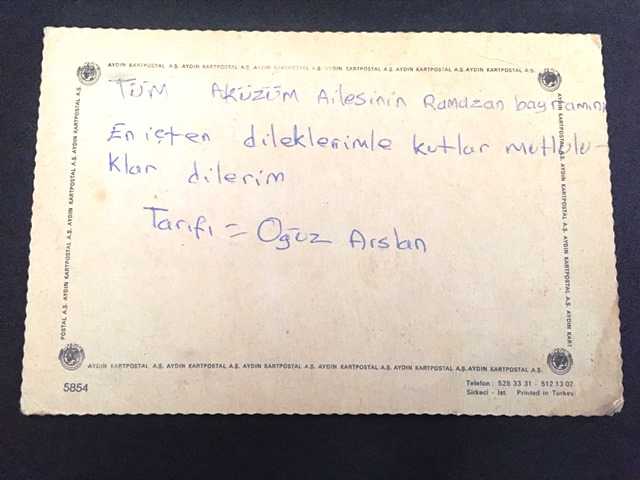 AYDIN KARTPOSTAL A.Ş. AYDIN KARTPOSTAL A.Ş. AYDIN KARTPOSTAL A.Ş. AYDIN KARTPOSTAL A.Ş. AYDIN KARTPOSTAL A.Ş.
TÜM AKÜZÜM Ailesinin Ramazan bayramını
En içten dileklerimle kutlar mutlulu-
klar dilerim
Tarifi = Oğuz Arslan
POSTAL A.Ş. AYDIN KARTPOSTAL A.Ş. AYDIN KARTPOSTAL A.Ş. AYDIN KARTPOSTAL A.Ş.
AYDIN KARTPOSTAL A.Ş. AYDIN KARTPOSTAL A.Ş. AYDIN KARTPOSTAL A.Ş. AYDIN KART
AYDIN KARTPOSTAL A.Ş. AYDIN KARTPOSTAL A.Ş. AYDIN KARTPOSTAL A.Ş. AYDIN KARTPOSTAL A.Ş. AYDIN KARTPOSTAL A.Ş.
5854
Telefon : 528 33 31 - 512 13 02
Sirkeci - İst. Printed in Turkey